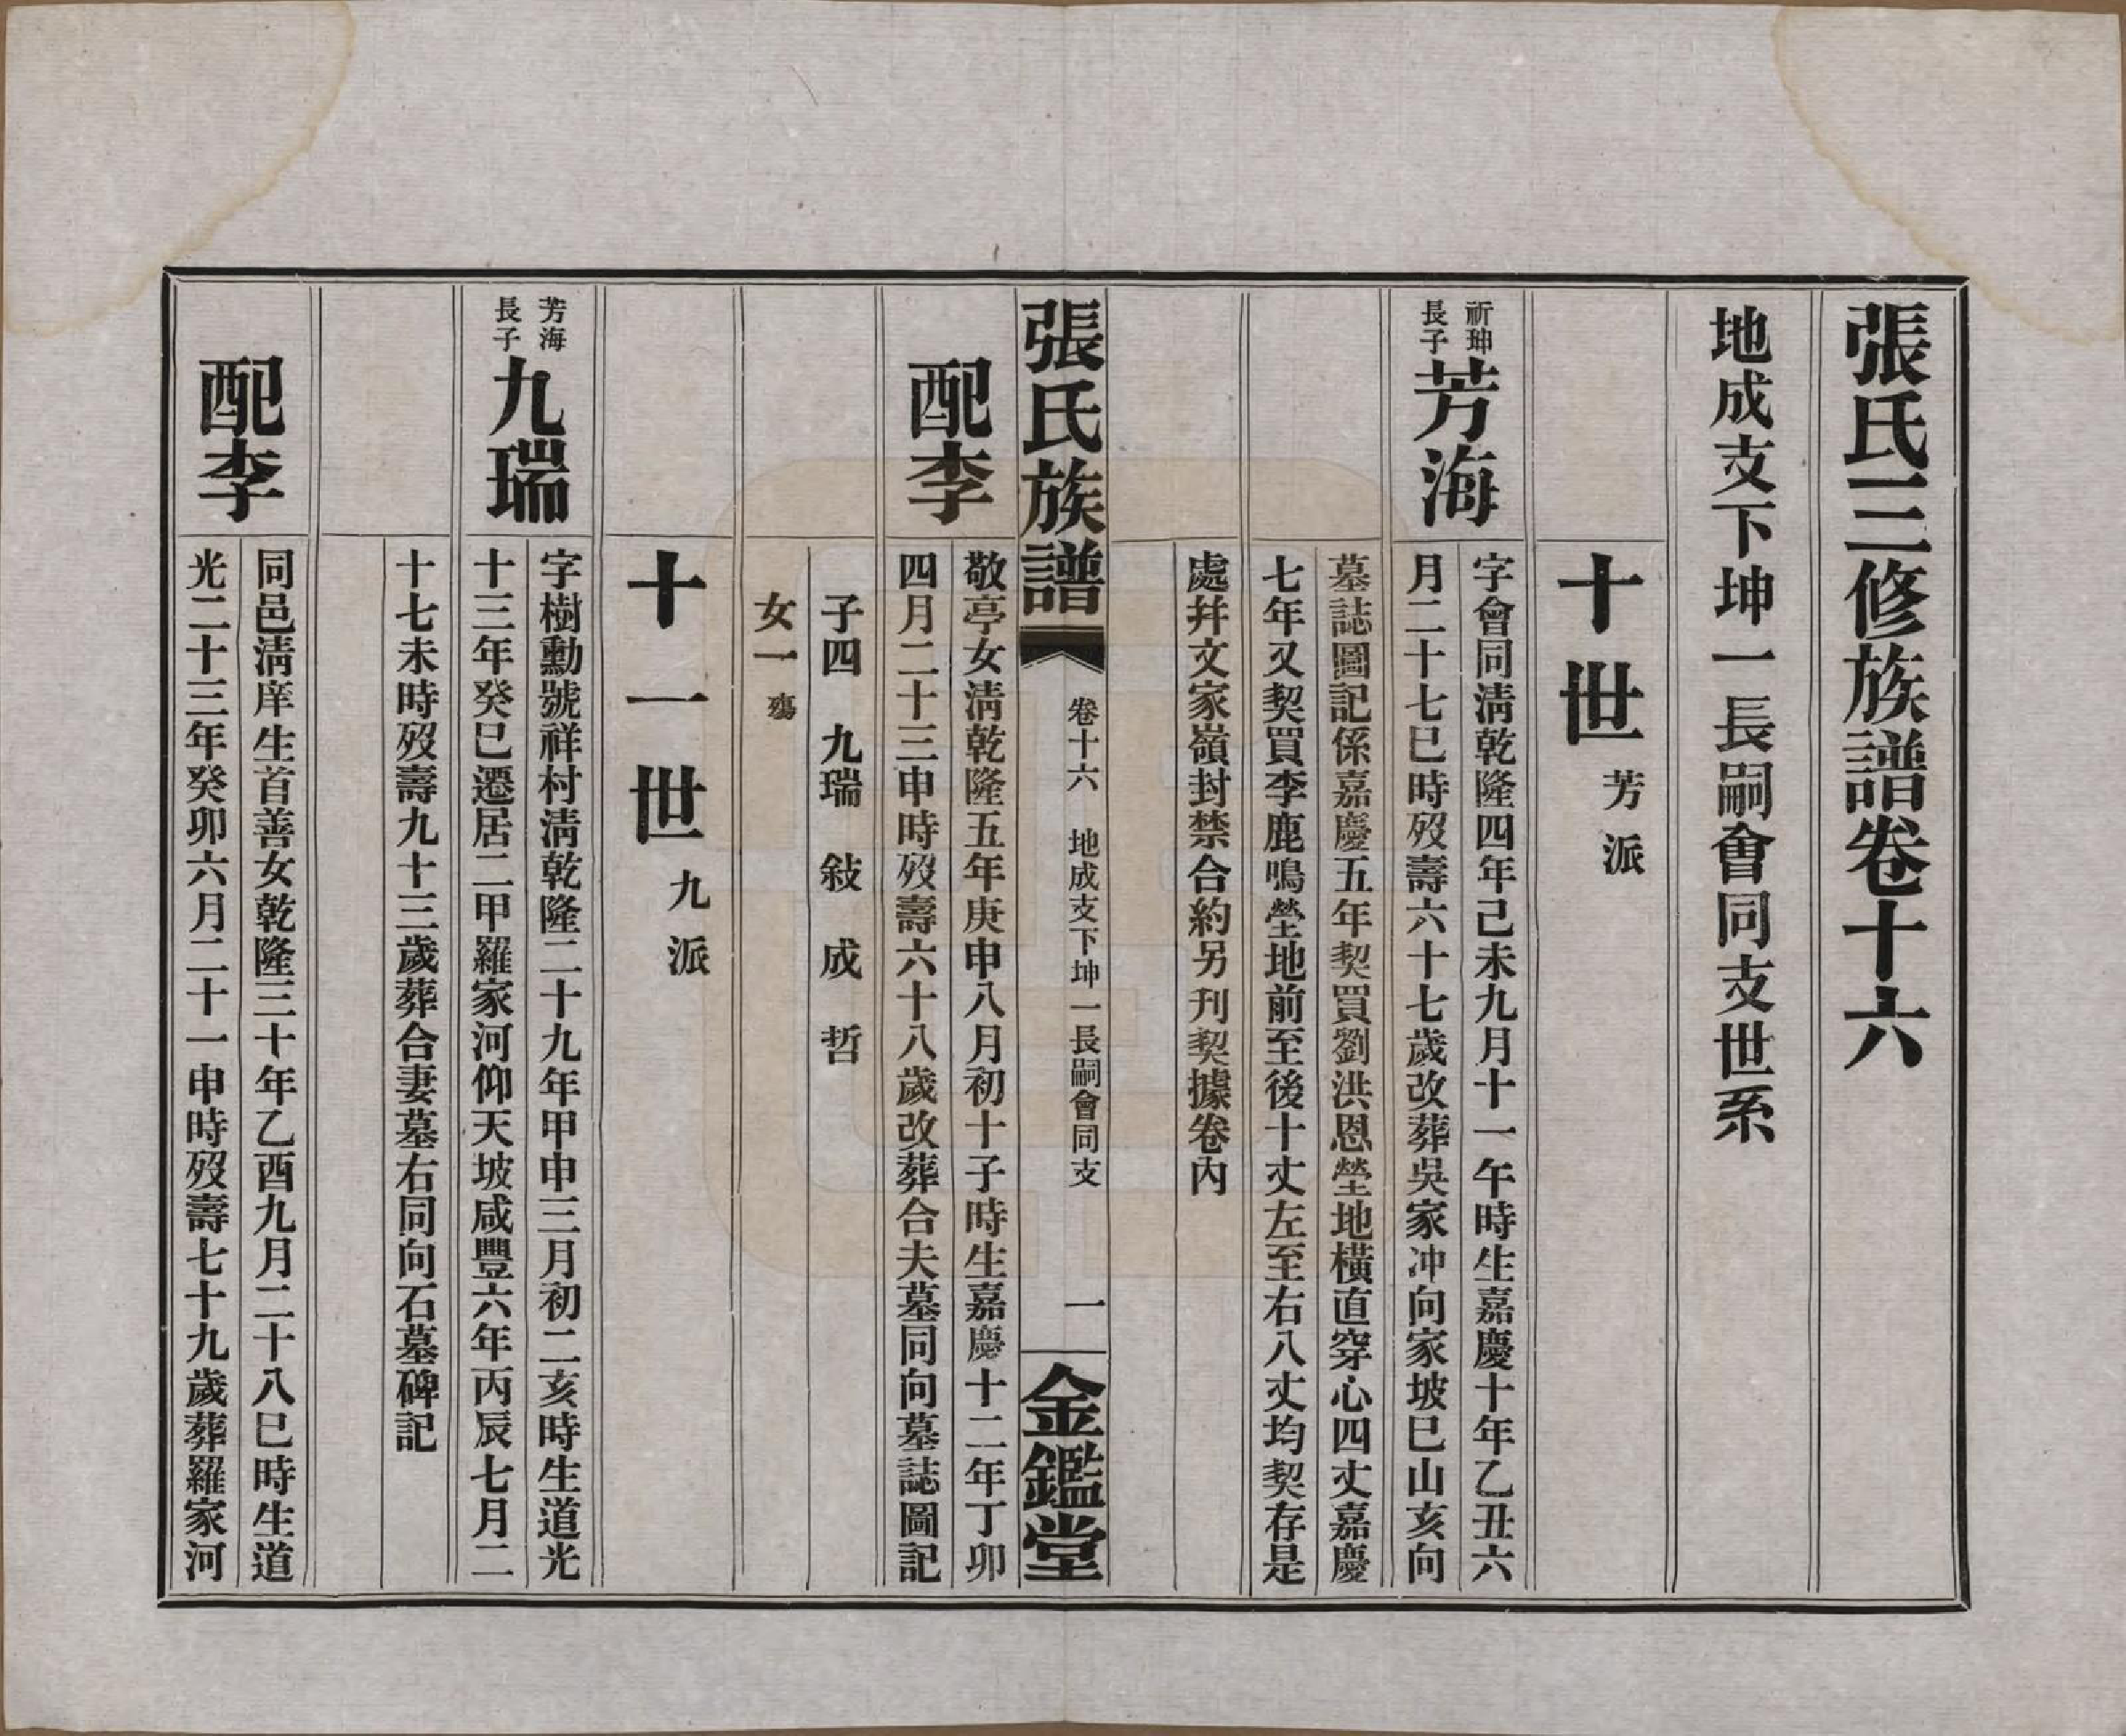 張氏三修族譜卷十六
地成支下坤一長嗣會同支世系
十世 芳派
祈珅
長子
芳海
字會同淸乾隆四年己未九月十一午時生嘉慶十年乙丑六
月二十七巳時歿壽六十七歲改葬吳家冲向家坡巳山亥向
墓誌圖記係嘉慶五年契買劉洪恩塋地橫直穿心四丈嘉慶
七年又契買李鹿鳴塋地前至後十丈左至右八丈均契存是
處幷文家嶺封禁合約另刊契據卷內
張氏族譜
卷十六 地成支下坤一長嗣會同支
一
金鑑堂
配李
敬亭女淸乾隆五年庚申八月初十子時生嘉慶十二年丁卯
四月二十三申時歿壽六十八歲改葬合夫墓同向墓誌圖記
子四 九瑞 敍 成 哲
女一 殤
十一世 九派
芳海
長子
九瑞
字樹勳號祥村淸乾隆二十九年甲申三月初二亥時生道光
十三年癸巳遷居二甲羅家河仰天坡咸豐六年丙辰七月二
十七未時歿壽九十三歲葬合妻墓右同向石墓碑記
配李
同邑淸庠生首善女乾隆三十年乙酉九月二十八巳時生道
光二十三年癸卯六月二十一申時歿壽七十九歲葬羅家河